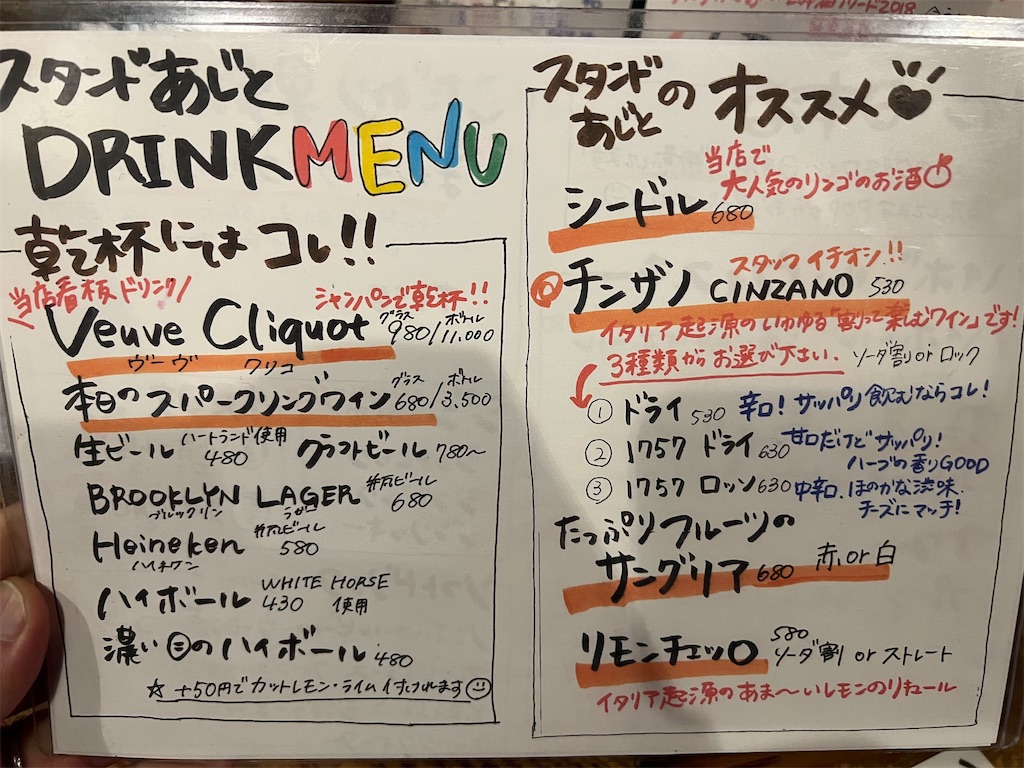 スタンドあじと
DRINK MENU
乾杯にはコレ!!
\当店看板ドリンク/
シャンパンで乾杯!!
Veuve Cliquot グラス 980/ボトル 11,000
ヴーヴ クリコ
本日のスパークリングワイン グラス 680/ボトル 3,500
生ビール ハートランド使用 480 クラフトビール 780~
BROOKLYN LAGER 瓶ビール 680
ブルックリン ラガー
Heineken 瓶ビール 580
ハイネケン
ハイボール WHITE HORSE 使用 430
濃いめのハイボール 480
☆ +50円でカットレモン・ライム付けれます
スタンドあじとのオススメ
当店で
大人気のリンゴのお酒
シードル 680
スタッフイチオシ!!
チンザノ CINZANO 530
イタリア起源のいわゆる「割って楽しむワイン」です!
3種類からお選び下さい. ソーダ割 or ロック
① ドライ 530 辛口! サッパリ飲むならコレ!
② 1757 ドライ 630 甘口だけどサッパリ!
ハーブの香りGOOD
③ 1757 ロッソ 630 中辛口. ほのかな渋味.
チーズにマッチ!
たっぷりフルーツの
サングリア 680 赤 or 白
リモンチェッロ 580 ソーダ割 or ストレート
イタリア起源のあま〜いレモンのリキュール